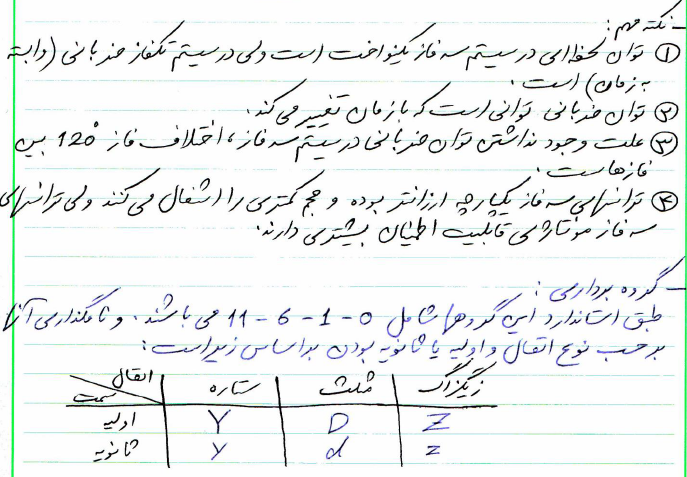 - نکته مهم:
① توان لحظه‌ای در سیستم سه فاز یکنواخت است ولی در سیستم تکفاز ضربانی (وابسته
به زمان) است.
② توان ضربانی توانی است که با زمان تغییر می کند.
③ علت وجود نداشتن توان ضربانی در سیستم سه فاز، اختلاف فاز 120° بین
فازهاست.
④ ترانسهای سه فاز یکپارچه ارزانتر بوده و حجم کمتری را اشغال می کنند ولی ترانسهای
سه فاز مونتاژی قابلیت اطمینان بیشتری دارند.
- گروه برداری:
طبق استاندارد این گروهها شامل 0 - 1 - 6 - 11 می باشند. و نامگذاری آنها
بر حسب نوع اتصال و اولیه یا ثانویه بودن بر اساس زیر است:
اتصال سمت | ستاره | مثلث | زیگزاگ
اولیه | Y | D | Z
ثانویه | y | d | z